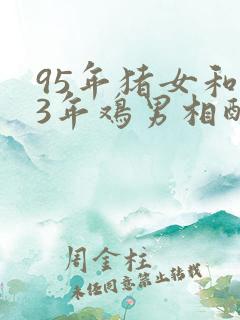 95年猪女和
3年鸡男相
周金柱
未经同意禁止转载